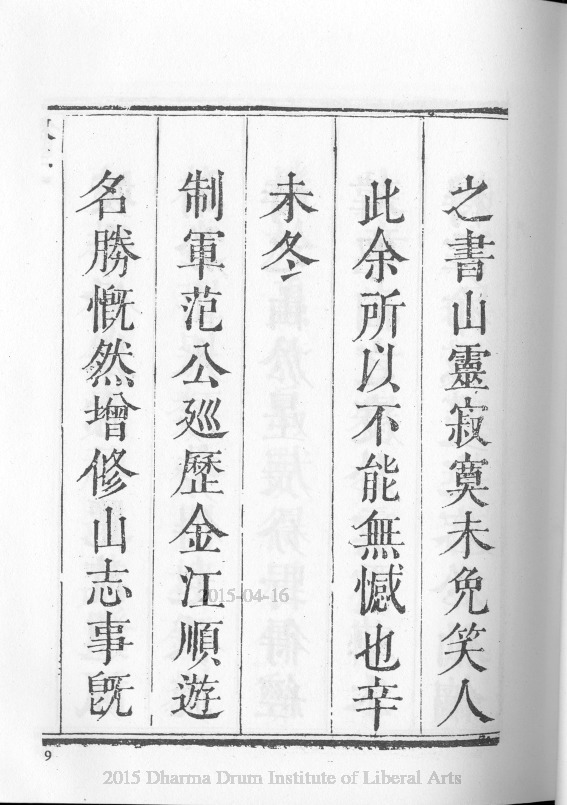 之書山靈寂寞未免笑人
此余所以不能無憾也辛
未冬
制軍范公廵歷金江順遊
名勝慨然增修山志事既
9
2015-04-16
2015 Dharma Drum Institute of Liberal Arts